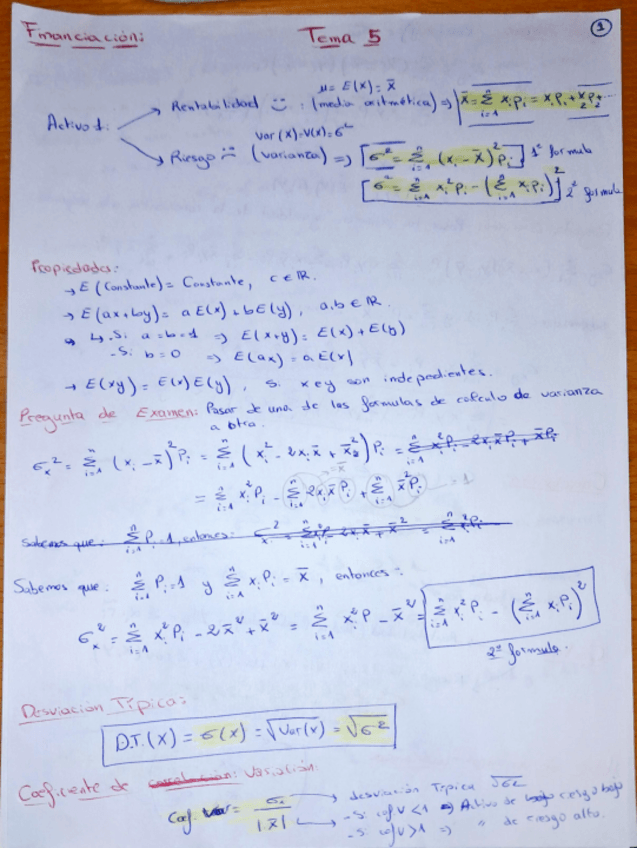 Financiación: Tema 5 1
μ = E(x) = x̄
Activo 1: → Rentabilidad :) : (media aritmética) ⇒ x̄ = Σᵢ₌₁ⁿ xᵢpᵢ = x₁P₁ + x₂P₂
Var(x) = V(x) = σ²
→ Riesgo :( (varianza) ⇒ σ² = Σᵢ₌₁ⁿ (xᵢ - x̄)² Pᵢ 1ª formula
σ² = Σᵢ₌₁ⁿ xᵢ² Pᵢ - (Σᵢ₌₁ⁿ xᵢPᵢ)² 2ª formula
Propiedades:
→ E(Constante) = Constante, c ∈ ℝ.
→ E(ax+by) = aE(x) + bE(y), a,b ∈ ℝ.
↳ - Si a=b=1 ⇒ E(x+y) = E(x) + E(y)
- Si b=0 ⇒ E(ax) = aE(x)
→ E(xy) = E(x)E(y), si x e y son indepedientes.
Pregunta de Examen: Pasar de una de las formulas de calculo de varianza
a otra.
σₓ² = Σᵢ₌₁ⁿ (xᵢ - x̄)² Pᵢ = Σᵢ₌₁ⁿ (xᵢ² - 2xᵢx̄ + x̄²) Pᵢ = Σᵢ₌₁ⁿ xᵢ²Pᵢ - 2xᵢx̄Pᵢ + x̄Pᵢ
= Σᵢ₌₁ⁿ xᵢ²Pᵢ - Σᵢ₌₁ⁿ 2xᵢx̄Pᵢ + Σᵢ₌₁ⁿ x̄²Pᵢ = x̄ = 1
Sabemos que: Σᵢ₌₁ⁿ Pᵢ=1, entonces:
Sabemos que: Σᵢ₌₁ⁿ Pᵢ=1 y Σᵢ₌₁ⁿ xᵢPᵢ = x̄, entonces:
σₓ² = Σᵢ₌₁ⁿ xᵢ²Pᵢ - 2x̄² + x̄² = Σᵢ₌₁ⁿ xᵢ²P - x̄² = Σᵢ₌₁ⁿ xᵢ²Pᵢ - (Σᵢ₌₁ⁿ xᵢPᵢ)²
2ª formula.
Desviación Típica:
D.T.(X) = σ(x) = √Var(x) = √σ²
Coeficiente de correlación: Variación:
Coef. Var = σₓ / |x̄| → desviación Típica √σ²
- Si cof V < 1 ⇒ Activo de bajo riesgo bajo
- Si cof V > 1 ⇒ " de riesgo alto.